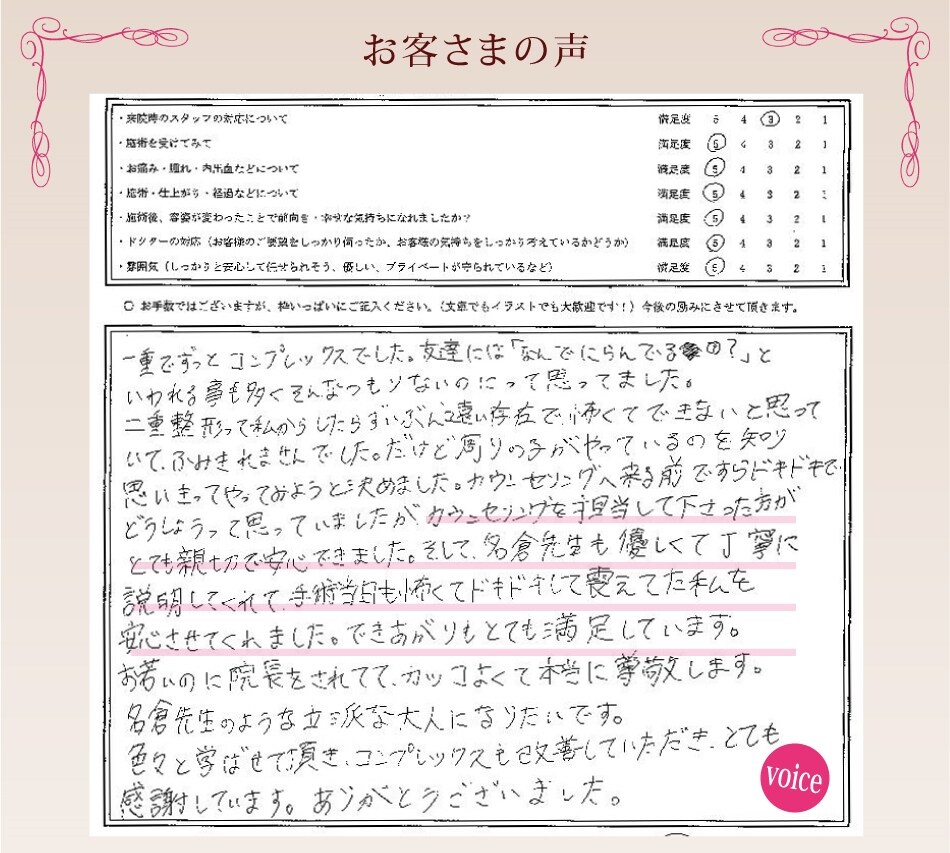 お客さまの声
・来院時のスタッフの対応について 満足度 5 4 3 2 1
・施術を受けてみて 満足度 5 4 3 2 1
・お痛み・腫れ・内出血などについて 満足度 5 4 3 2 1
・施術・仕上がり・経過などについて 満足度 5 4 3 2 1
・施術後、容姿が変わったことで前向き・幸せな気持ちになれましたか? 満足度 5 4 3 2 1
・ドクターの対応(お客様のご要望をしっかり伺ったか、お客様の気持ちをしっかり考えているかどうか) 満足度 5 4 3 2 1
・雰囲気(しっかりと安心して任せられそう、優しい、プライベートが守られているなど) 満足度 5 4 3 2 1
○ お手数ではございますが、枠いっぱいにご記入ください。(文章でもイラストでも大歓迎です!)今後の励みにさせて頂きます。
一重でずっとコンプレックスでした。友達には「なんでにらんでるの?」と
いわれる事も多くそんなつもりないのにって思ってました。
二重整形って私からしたらずいぶん遠い存在で、怖くてできないと思って
いて、ふみきれませんでした。だけど周りの子がやっているのを知り
思いきってやってみようと決めました。カウンセリングへ来る前ですらドキドキで
どうしようって思っていましたがカウンセリングを担当して下さった方が
とても親切で安心できました。そして、名倉先生も優しくて丁寧に
説明してくれて、手術当日も怖くてドキドキして震えてた私を
安心させてくれました。できあがりもとても満足しています。
お若いのに院長をされてて、カッコよくて本当に尊敬します。
名倉先生のような立派な大人になりたいです。
色々と学ばせて頂き、コンプレックスも改善していただき、とても
感謝しています。ありがとうございました。
voice